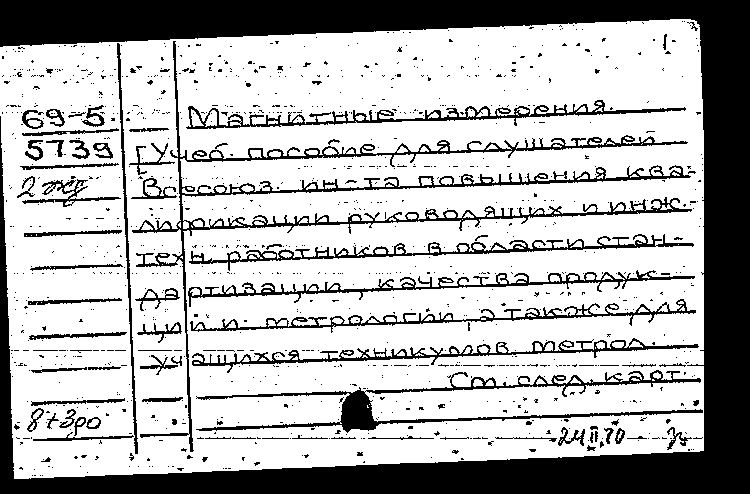 1
69-5 Магнитные измерения.
5739 [Учеб. пособие для слушателей
2 экз Всесоюз. ин-та повышения ква-
лификации руководящих и инж.-
техн. работников в области стан-
дартизации, качества продук-
ции и метрологии, а также для
учащихся техникумов. метрол.
См. след. карт.
24 II 70